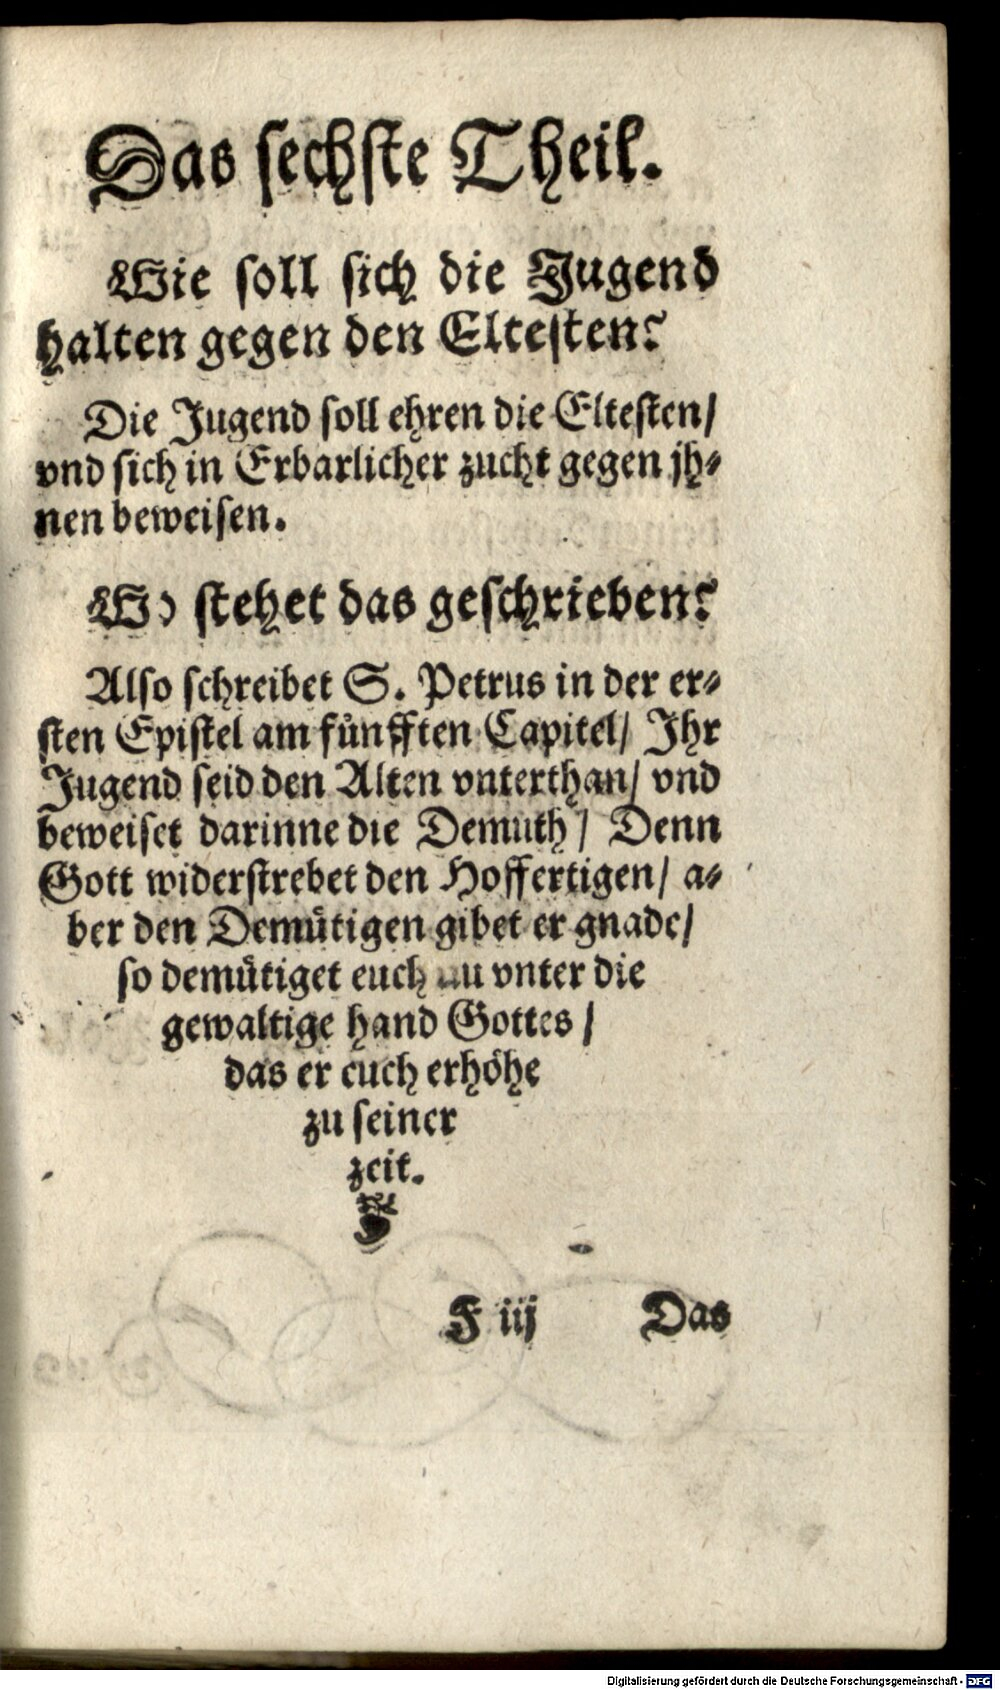 Das sechste Theil.
Wie soll sich die Jugend
halten gegen den Eltesten?
Die Jugend soll ehren die Eltesten/
vnd sich in Erbarlicher zucht gegen jh⸗
nen beweisen.
Wo stehet das geschrieben?
Also schreibet S. Petrus in der er⸗
sten Epistel am fuͤnfften Capitel/ Ihr
Jugend seid den Alten vnterthan/ vnd
beweiset darinne die Demuth/ Denn
Gott widerstrebet den Hoffertigen/ a⸗
ber den Demuͤtigen gibet er gnade/
so demuͤtiget euch nu vnter die
gewaltige hand Gottes/
das er euch erhoͤhe
zu seiner
zeit.
F iij Das
Digitalisierung gefördert durch die Deutsche Forschungsgemeinschaft - DFG